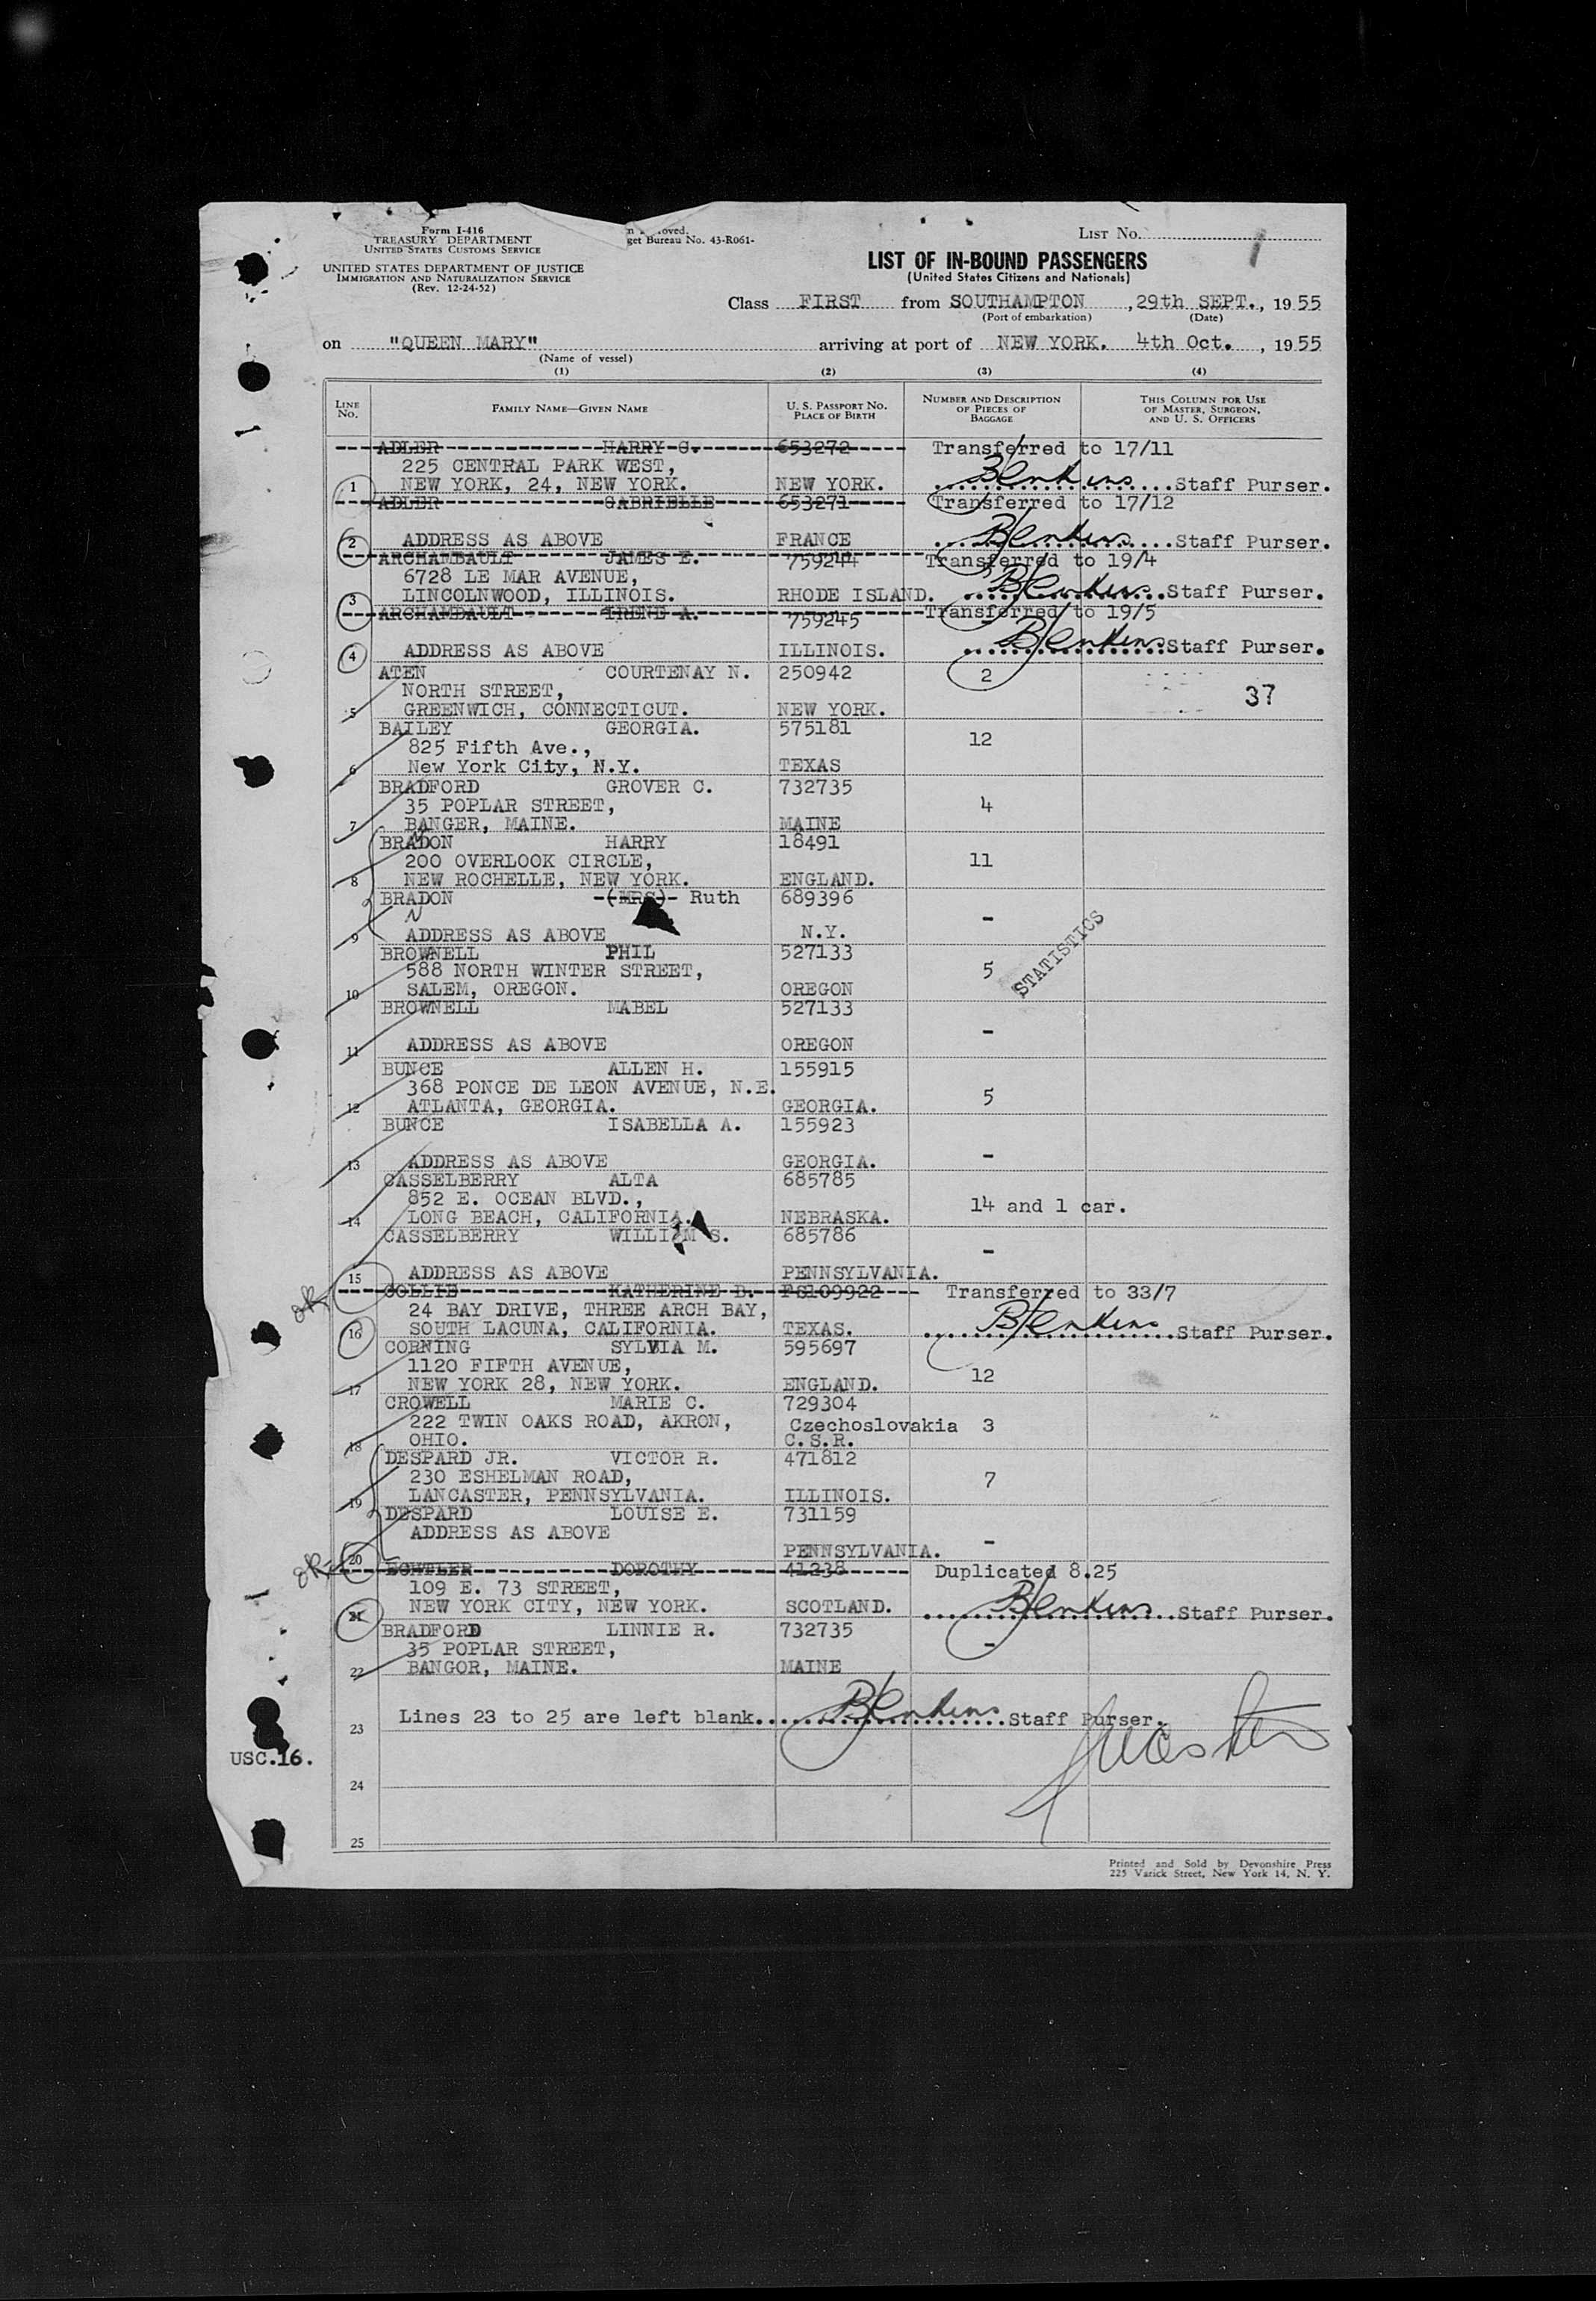 Form I-416
TREASURY DEPARTMENT
UNITED STATES CUSTOMS SERVICE
UNITED STATES DEPARTMENT OF JUSTICE
IMMIGRATION AND NATURALIZATION SERVICE
(Rev. 12-24-52)
get Bureau No. 43-R061-
LIST No. 1
LIST OF IN-BOUND PASSENGERS
(United States Citizens and Nationals)
Class FIRST from SOUTHAMPTON , 29th SEPT. , 19 55
(Port of embarkation) (Date)
on "QUEEN MARY" arriving at port of NEW YORK. 4th Oct. , 19 55
(Name of vessel)
(1) (2) (3) (4)
LINE No. FAMILY NAME—GIVEN NAME U. S. PASSPORT No. PLACE OF BIRTH NUMBER AND DESCRIPTION OF PIECES OF BAGGAGE THIS COLUMN FOR USE OF MASTER, SURGEON, AND U. S. OFFICERS
ADLER HARRY G. 653272 Transferred to 17/11
225 CENTRAL PARK WEST,
1 NEW YORK, 24, NEW YORK. NEW YORK. BJenkins Staff Purser.
ADLER GABRIELLE 653271 Transferred to 17/12
2 ADDRESS AS ABOVE FRANCE BJenkins Staff Purser.
ARCHAMBAULT JAMES E. 759244 Transferred to 19/4
6728 LE MAR AVENUE,
3 LINCOLNWOOD, ILLINOIS. RHODE ISLAND. BJenkins Staff Purser.
ARCHAMBAULT IRENE A. 759245 Transferred to 19/5
4 ADDRESS AS ABOVE ILLINOIS. BJenkins Staff Purser.
ATEN COURTENAY N. 250942 2
NORTH STREET, 37
5 GREENWICH, CONNECTICUT. NEW YORK.
BAILEY GEORGIA. 575181
825 Fifth Ave., 12
6 New York City, N.Y. TEXAS
BRADFORD GROVER C. 732735
35 POPLAR STREET, 4
7 BANGER, MAINE. MAINE
BRADON HARRY 18491
N
200 OVERLOOK CIRCLE, 11
8 NEW ROCHELLE, NEW YORK. ENGLAND.
BRADON (MRS) Ruth 689396
N -
9 ADDRESS AS ABOVE N.Y.
STATISTICS
BROWNELL PHIL 527133
588 NORTH WINTER STREET, 5
10 SALEM, OREGON. OREGON
BROWNELL MABEL 527133
-
11 ADDRESS AS ABOVE OREGON
BUNCE ALLEN H. 155915
368 PONCE DE LEON AVENUE, N.E. 5
12 ATLANTA, GEORGIA. GEORGIA.
BUNCE ISABELLA A. 155923
13 ADDRESS AS ABOVE GEORGIA. -
CASSELBERRY ALTA 685785
852 E. OCEAN BLVD., 14 and 1 car.
14 LONG BEACH, CALIFORNIA. NEBRASKA.
CASSELBERRY WILLIAM S. 685786
-
15 ADDRESS AS ABOVE PENNSYLVANIA.
OK
COLLIE KATHERINE B. FS109922 Transferred to 33/7
24 BAY DRIVE, THREE ARCH BAY,
16 SOUTH LACUNA, CALIFORNIA. TEXAS. BJenkins Staff Purser.
CORNING SYLVIA M. 595697
1120 FIFTH AVENUE, 12
17 NEW YORK 28, NEW YORK. ENGLAND.
CROWELL MARIE C. 729304
222 TWIN OAKS ROAD, AKRON, Czechoslovakia 3
18 OHIO. C.S.R.
DESPARD JR. VICTOR R. 471812
230 ESHELMAN ROAD, 7
19 LANCASTER, PENNSYLVANIA. ILLINOIS.
DESPARD LOUISE E. 731159
ADDRESS AS ABOVE -
20 PENNSYLVANIA.
OK
DOROTHY 41238 Duplicated 8.25
109 E. 73 STREET,
21 NEW YORK CITY, NEW YORK. SCOTLAND. BJenkins Staff Purser.
BRADFORD LINNIE R. 732735
35 POPLAR STREET, -
22 BANGOR, MAINE. MAINE
23 Lines 23 to 25 are left blank. BJenkins Staff Purser.
USC.16.
24
25
Printed and Sold by Devonshire Press
225 Varick Street, New York 14, N. Y.